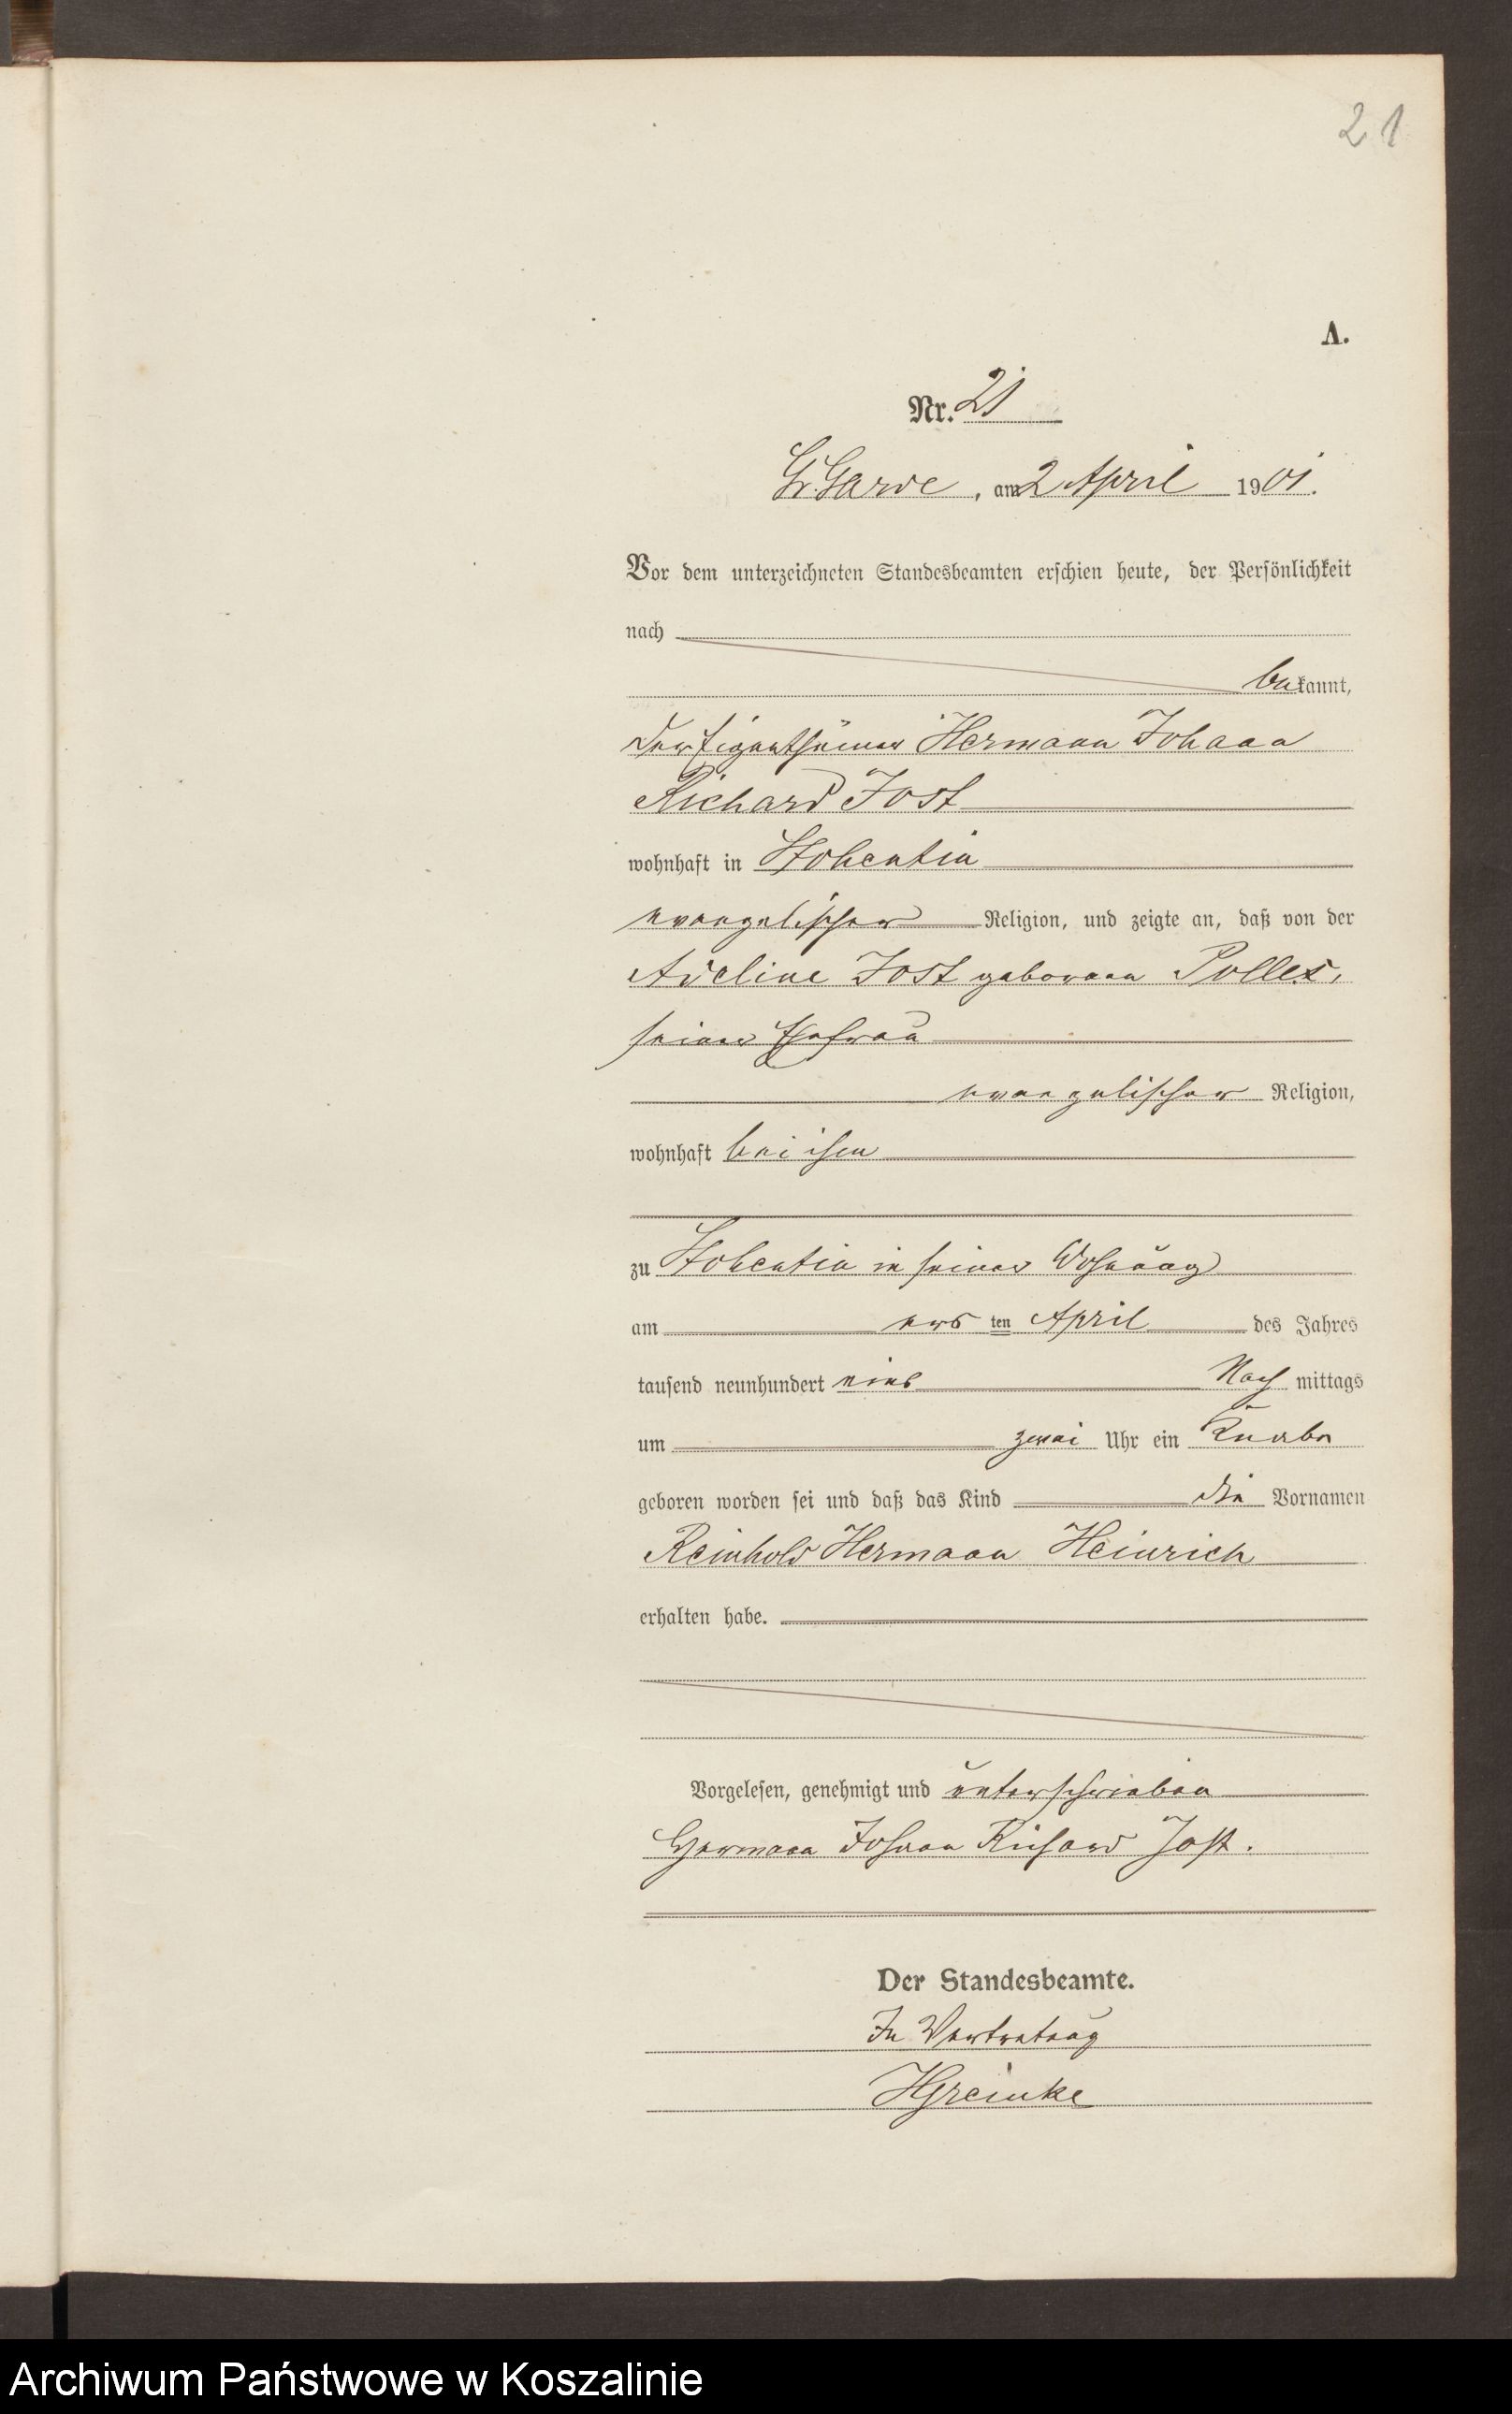 21
A.
Nr. 21
Gr. Garde, am 2 April 1901.
Vor dem unterzeichneten Standesbeamten erschien heute, der Persönlichkeit
nach
bekannt,
der Eigenthümer Hermann Johann
Richard Jost
wohnhaft in Stohentin
evangelischer Religion, und zeigte an, daß von der
Adeline Jost geborenen Pollex,
seiner Ehefrau
evangelischer Religion,
wohnhaft bei ihm
zu Stohentin in seiner Wohnung
am ers ten April des Jahres
tausend neunhundert eins Nach mittags
um zwei Uhr ein Knabe
geboren worden sei und daß das Kind die Vornamen
Reinhold Hermann Heinrich
erhalten habe.
Vorgelesen, genehmigt und unterschrieben
Hermann Johann Richard Jost.
Der Standesbeamte.
In Vertretung
HGreinke
Archiwum Państwowe w Koszalinie